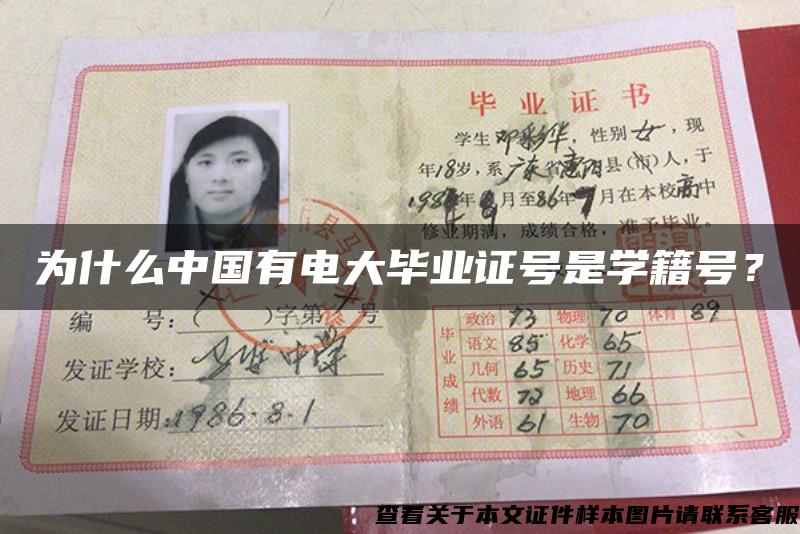 毕业证书
学生邓彩华，性别女，现
年18岁，系广东省惠阳县（市）人，于
月至86年7月在本校高中
修业期满，成绩合格，准予毕业。
为什么中国有电大毕业证号是学籍号？
编 号：( )字第 号
发证学校：中学
发证日期：1986.8.1
毕业成绩
政治 73 物理 70 体育 89
语文 85 化学 65
几何 65 历史 71
代数 72 地理 66
外语 61 生物 70
查看关于本文证件样本图片请联系客服